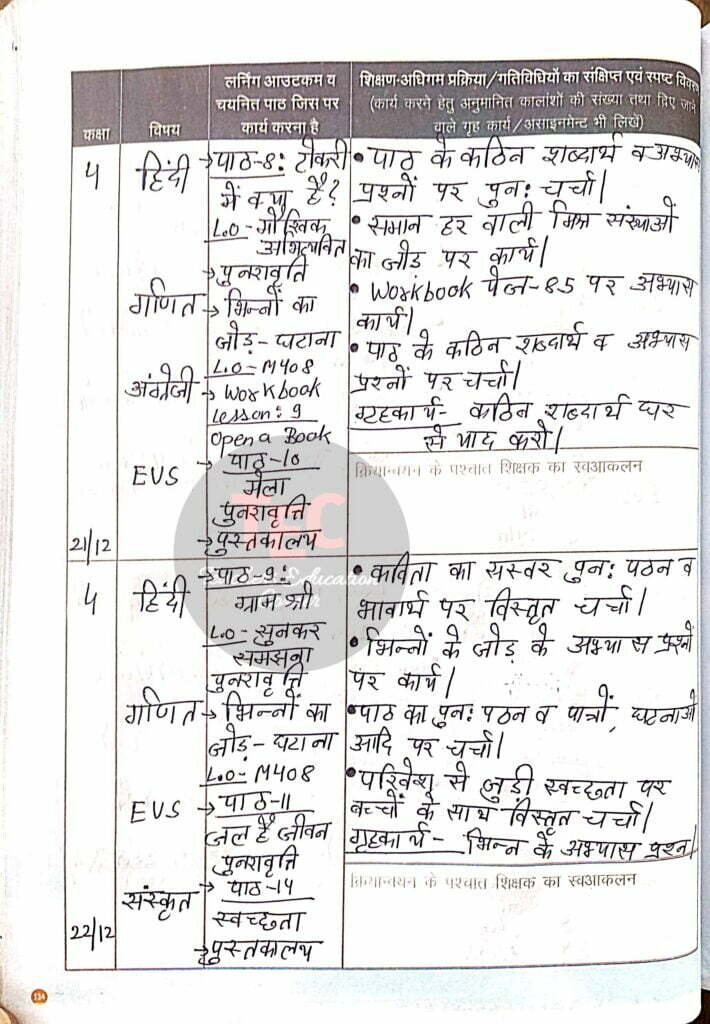 कक्षा
विषय
लर्निंग आउटकम व
चयनित पाठ जिस पर
कार्य करना है
शिक्षण-अधिगम प्रक्रिया/गतिविधियों का संक्षिप्त एवं स्पष्ट
(कार्य करने हेतु अनुमानित कालांशों की संख्या तथा दिए जाने
वाले गृह कार्य/असाइनमेंट भी लिखें)
4
हिंदी
→ पाठ-8: टोकरी
में क्या है?
L.O - मौखिक
अभिव्यक्ति
→ पुनरावृति
गणित
→ भिन्नों का
जोड़ - घटाना
L.O - M408
अंग्रेजी
→ Workbook
Lesson: 9
Open a Book
EVS
→ पाठ-10
मेला
पुनरावृत्ति
→ पुस्तकालय
21/12
• पाठ के कठिन शब्दार्थ व अभ्यास
प्रश्नों पर पुन: चर्चा।
• समान हर वाली भिन्न संख्याओं
का जोड़ पर कार्य।
• Workbook पेज-85 पर अभ्यास
कार्य।
• पाठ के कठिन शब्दार्थ व अभ्यास
प्रश्नों पर चर्चा।
गृहकार्य - कठिन शब्दार्थ घर
से याद करो।
क्रियान्वयन के पश्चात शिक्षक का स्वआकलन
TEC
Education
4
हिंदी
→ पाठ-9:
ग्राम श्री
L.O - सुनकर
समझना
पुनरावृत्ति
गणित
→ भिन्नों का
जोड़ - घटाना
L.O - M408
EVS
→ पाठ-11
जल है जीवन
पुनरावृत्ति
संस्कृत
→ पाठ-14
स्वच्छता
→ पुस्तकालय
22/12
• कविता का सस्वर पुन: पठन व
भावार्थ पर विस्तृत चर्चा।
• भिन्नों के जोड़ के अभ्यास प्रश्नों
पर कार्य।
• पाठ का पुन: पठन व पात्रों, घटनाओं
आदि पर चर्चा।
• परिवेश से जुड़ी स्वच्छता पर
बच्चों के साथ विस्तृत चर्चा।
गृहकार्य - भिन्न के अभ्यास प्रश्न।
क्रियान्वयन के पश्चात शिक्षक का स्वआकलन
134